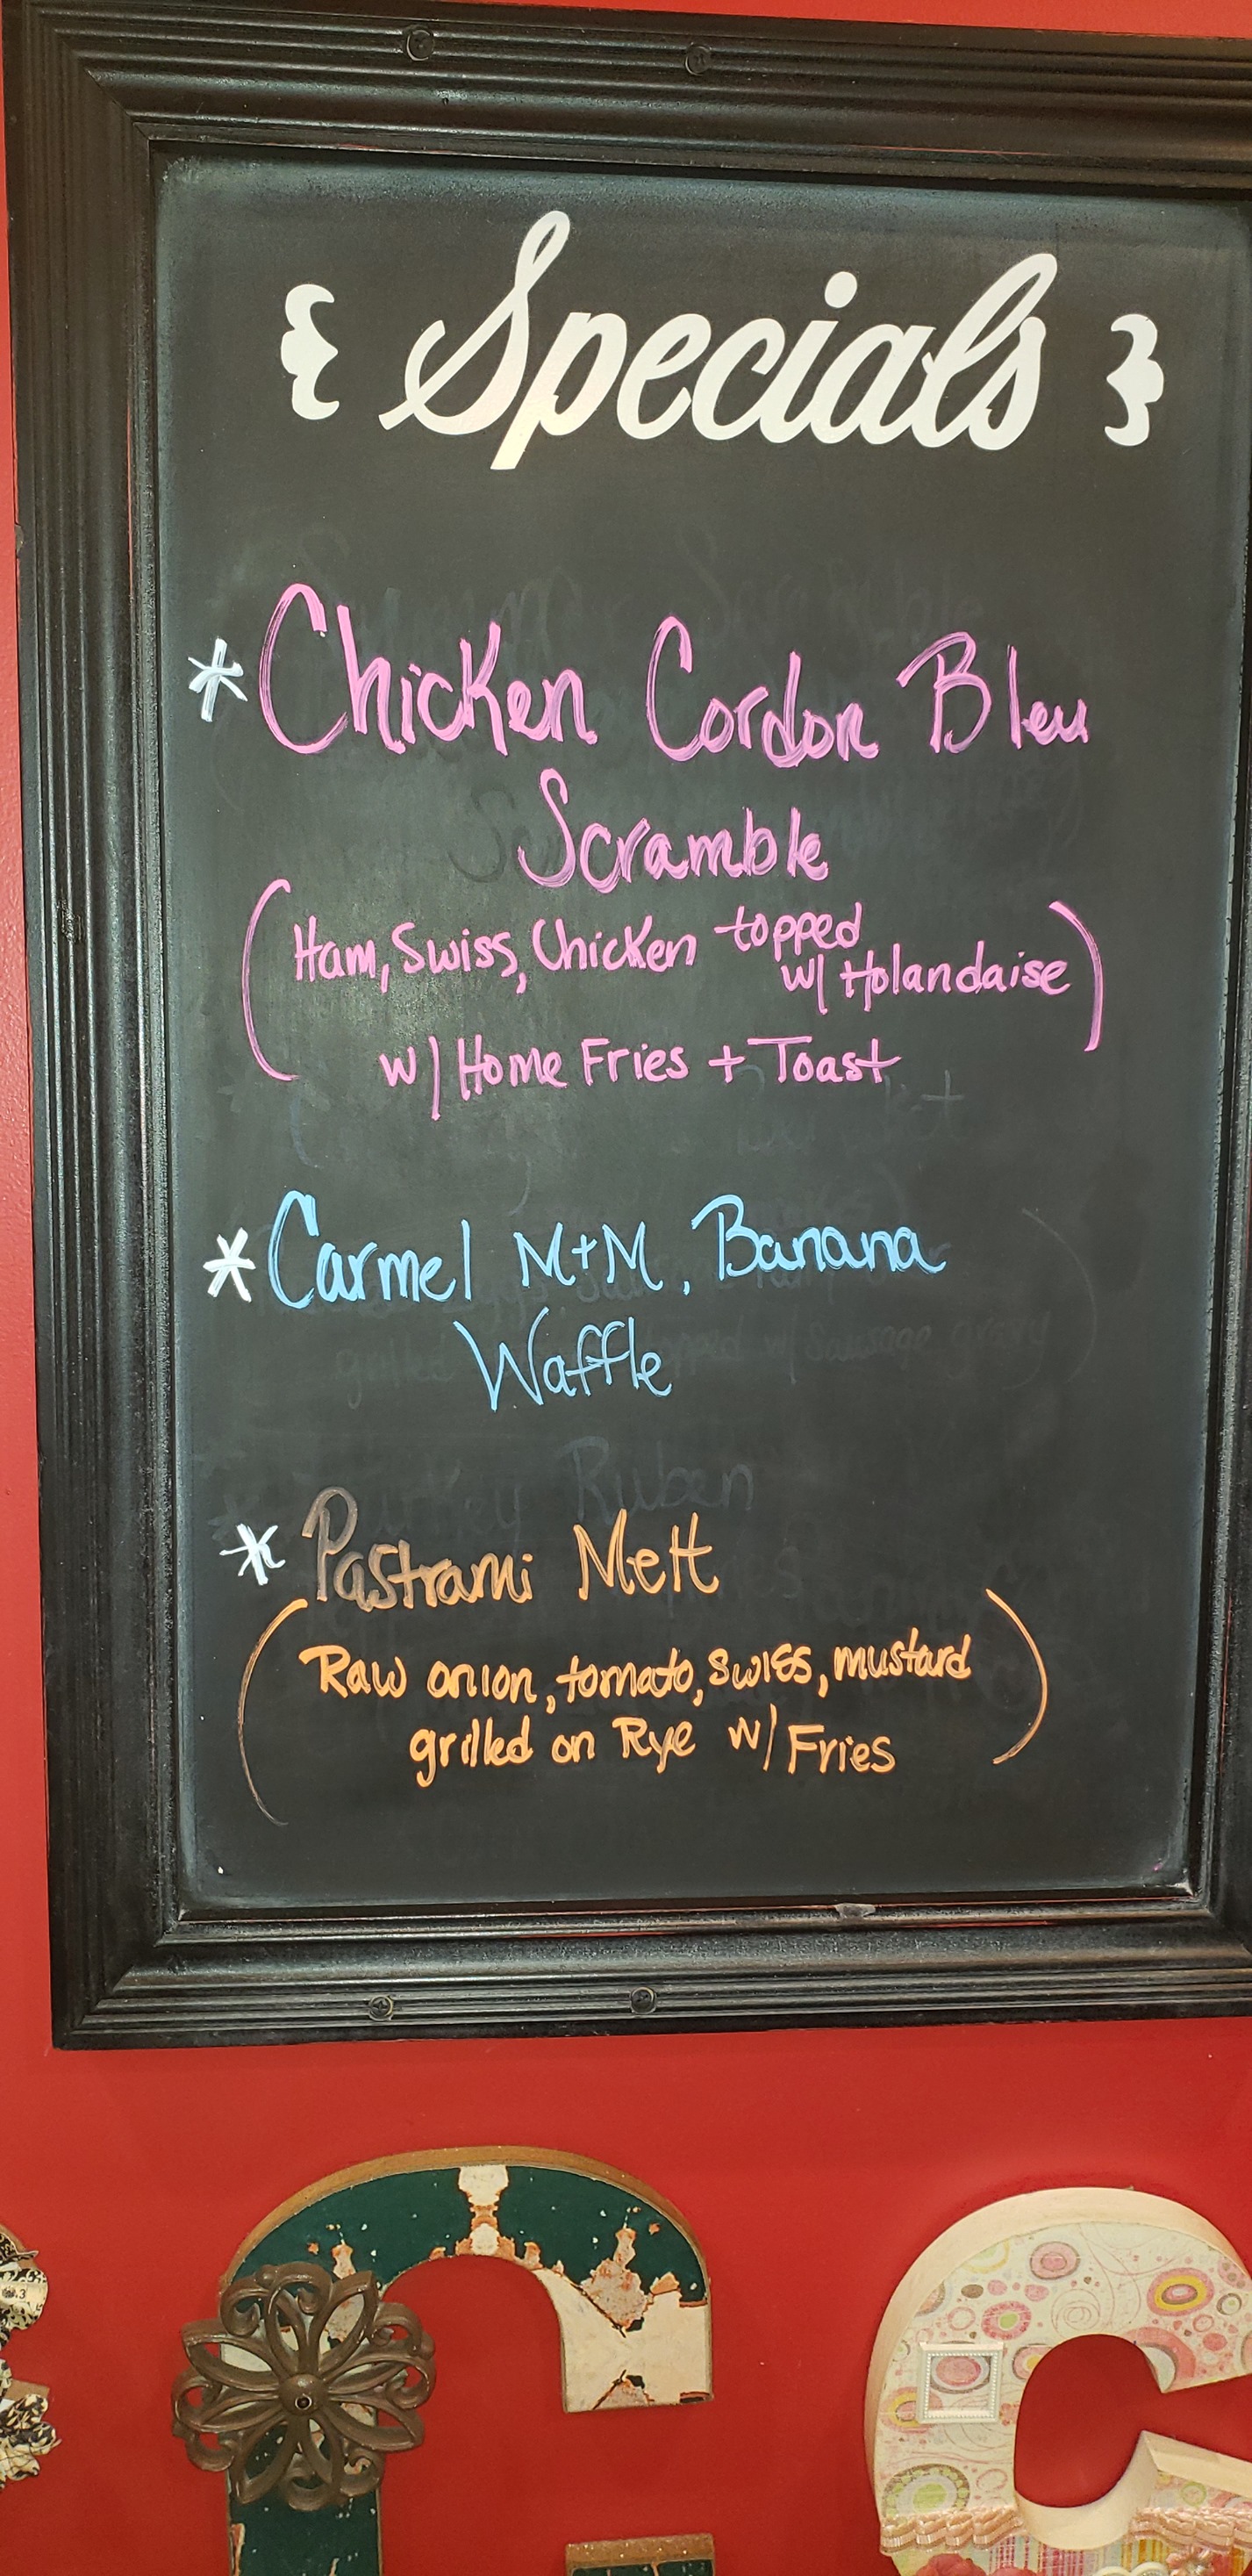 { Specials }
* Chicken Cordon Bleu
Scramble
(Ham, Swiss, Chicken topped
w/ Holandaise)
w/ Home Fries + Toast
* Carmel M+M, Banana
Waffle
* Pastrami Melt
(Raw onion, tomato, swiss, mustard
grilled on Rye w/ Fries)
G
G